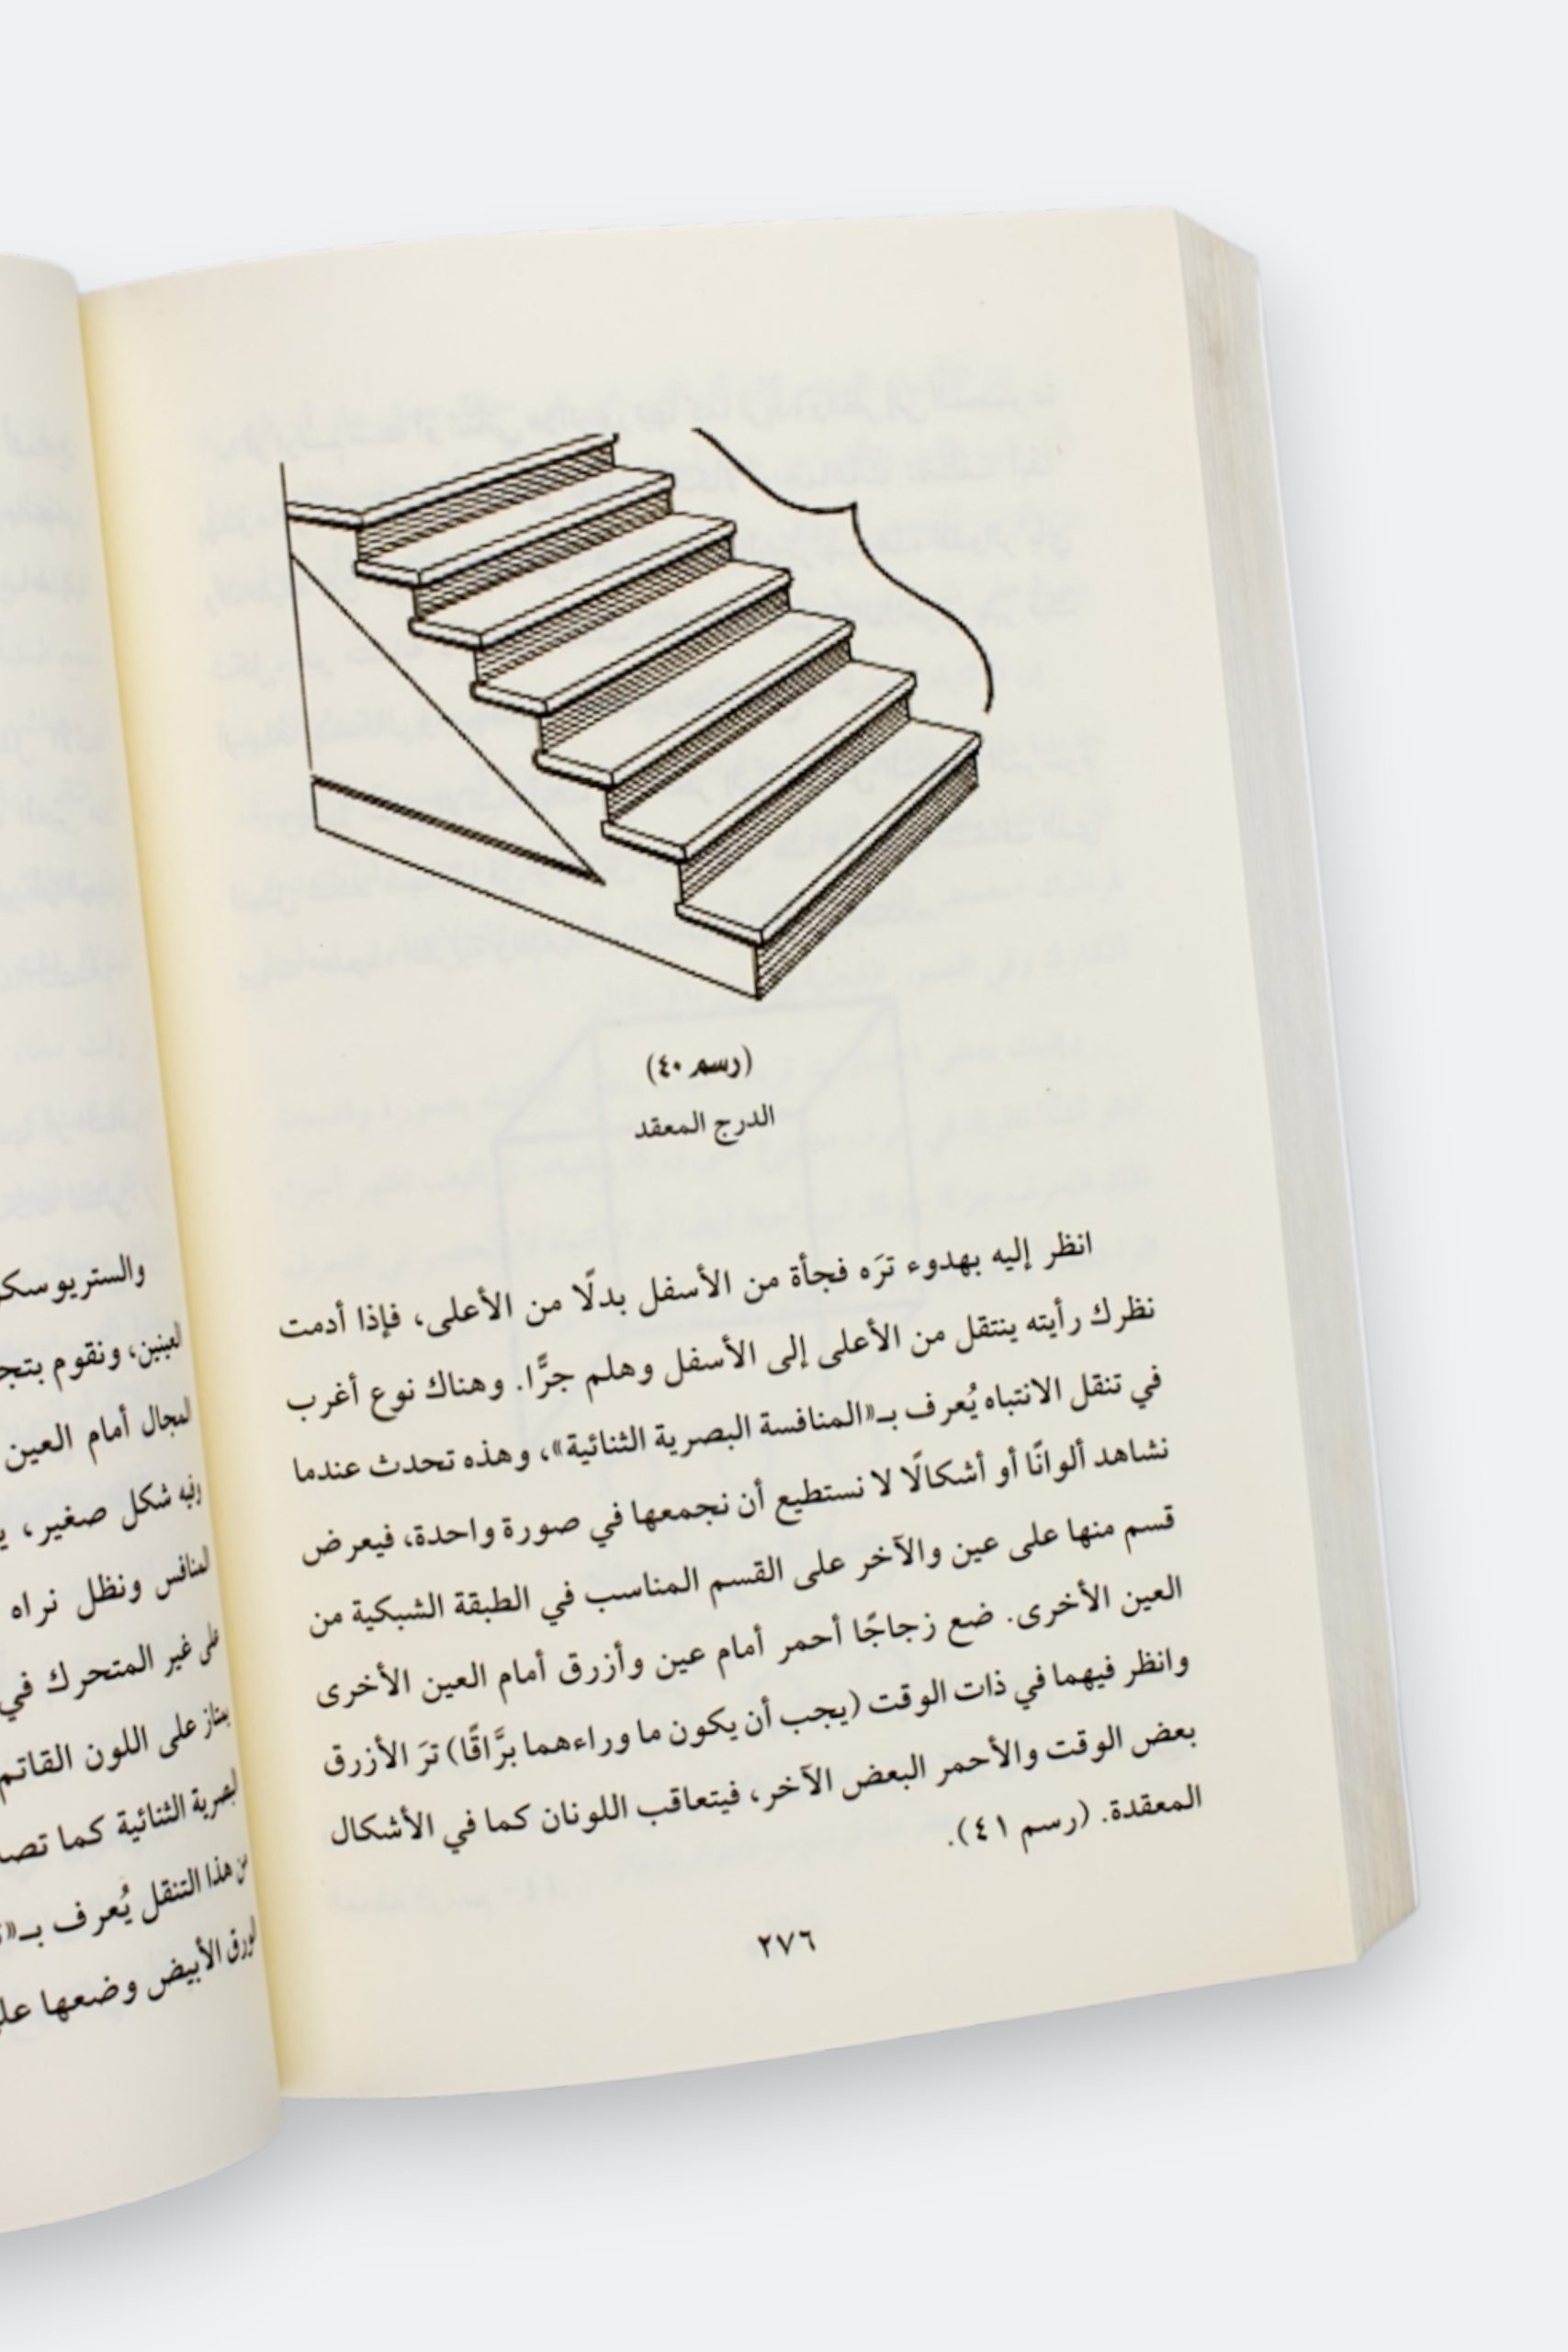 (رسم ٤٠)
الدرج المعقد
انظر إليه بهدوء ترَه فجأة من الأسفل بدلًا من الأعلى، فإذا أدمت
نظرك رأيته ينتقل من الأعلى إلى الأسفل وهلم جرًّا. وهناك نوع أغرب
في تنقل الانتباه يُعرف بـ«المنافسة البصرية الثنائية»، وهذه تحدث عندما
نشاهد ألوانًا أو أشكالًا لا نستطيع أن نجمعها في صورة واحدة، فيعرض
قسم منها على عين والآخر على القسم المناسب في الطبقة الشبكية من
العين الأخرى. ضع زجاجًا أحمر أمام عين وأزرق أمام العين الأخرى
وانظر فيهما في ذات الوقت (يجب أن يكون ما وراءهما برَّاقًا) ترَ الأزرق
بعض الوقت والأحمر البعض الآخر، فيتعاقب اللونان كما في الأشكال
المعقدة. (رسم ٤١).
٢٧٦
العينين، ونقوم بتجـ
المجال أمام العين
وفيه شكل صغير،
المنافس ونظل نراه
على غير المتحرك في
يمتاز على اللون القاتم
البصرية الثنائية كما تصد
من هذا التنقل يُعرف بـ«
الورق الأبيض وضعها على